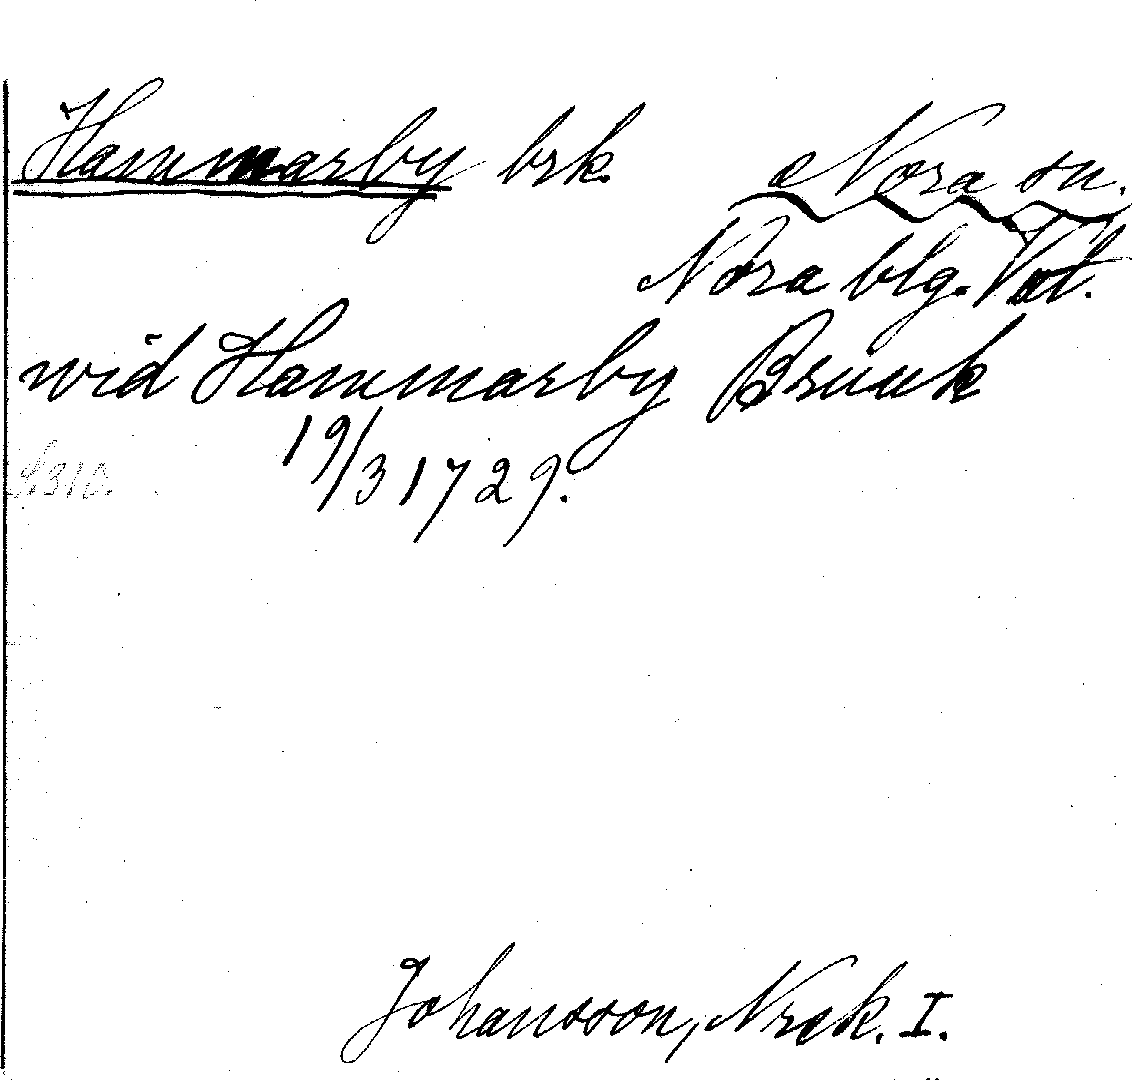 Hammarby brk. Nora sn.
Nora blg. Vstl.
wid Hammarby Bruuk
19/3 1729.
S. 310.
Johansson, Nrak. I.